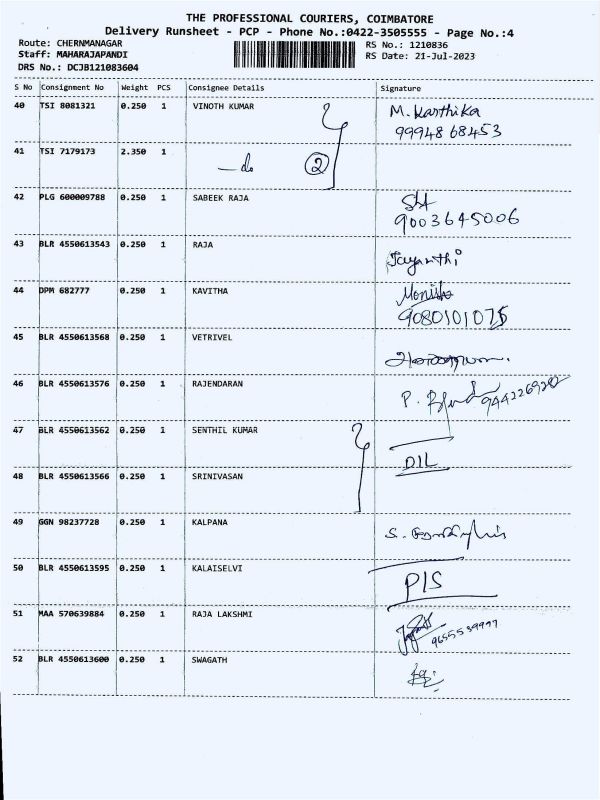 THE PROFESSIONAL COURIERS, COIMBATORE
Delivery Runsheet - PCP - Phone No.:0422-3505555 - Page No.:4
Route: CHERNMANAGAR RS No.: 1210836
Staff: MAHARAJAPANDI RS Date: 21-Jul-2023
DRS No.: DCJB121083604
S No Consignment No Weight PCS Consignee Details Signature
40 TSI 8081321 0.250 1 VINOTH KUMAR M. Karthika
9994868453
41 TSI 7179173 2.350 1
—do 2
42 PLG 600009788 0.250 1 SABEEK RAJA
9003645006
43 BLR 4550613543 0.250 1 RAJA
Jayanthi
44 DPM 682777 0.250 1 KAVITHA Monisha
9080101075
45 BLR 4550613568 0.250 1 VETRIVEL
46 BLR 4550613576 0.250 1 RAJENDARAN
P.
47 BLR 4550613562 0.250 1 SENTHIL KUMAR
DIL
48 BLR 4550613566 0.250 1 SRINIVASAN
49 GGN 98237728 0.250 1 KALPANA
50 BLR 4550613595 0.250 1 KALAISELVI
P/S
51 MAA 570639884 0.250 1 RAJA LAKSHMI
52 BLR 4550613600 0.250 1 SWAGATH